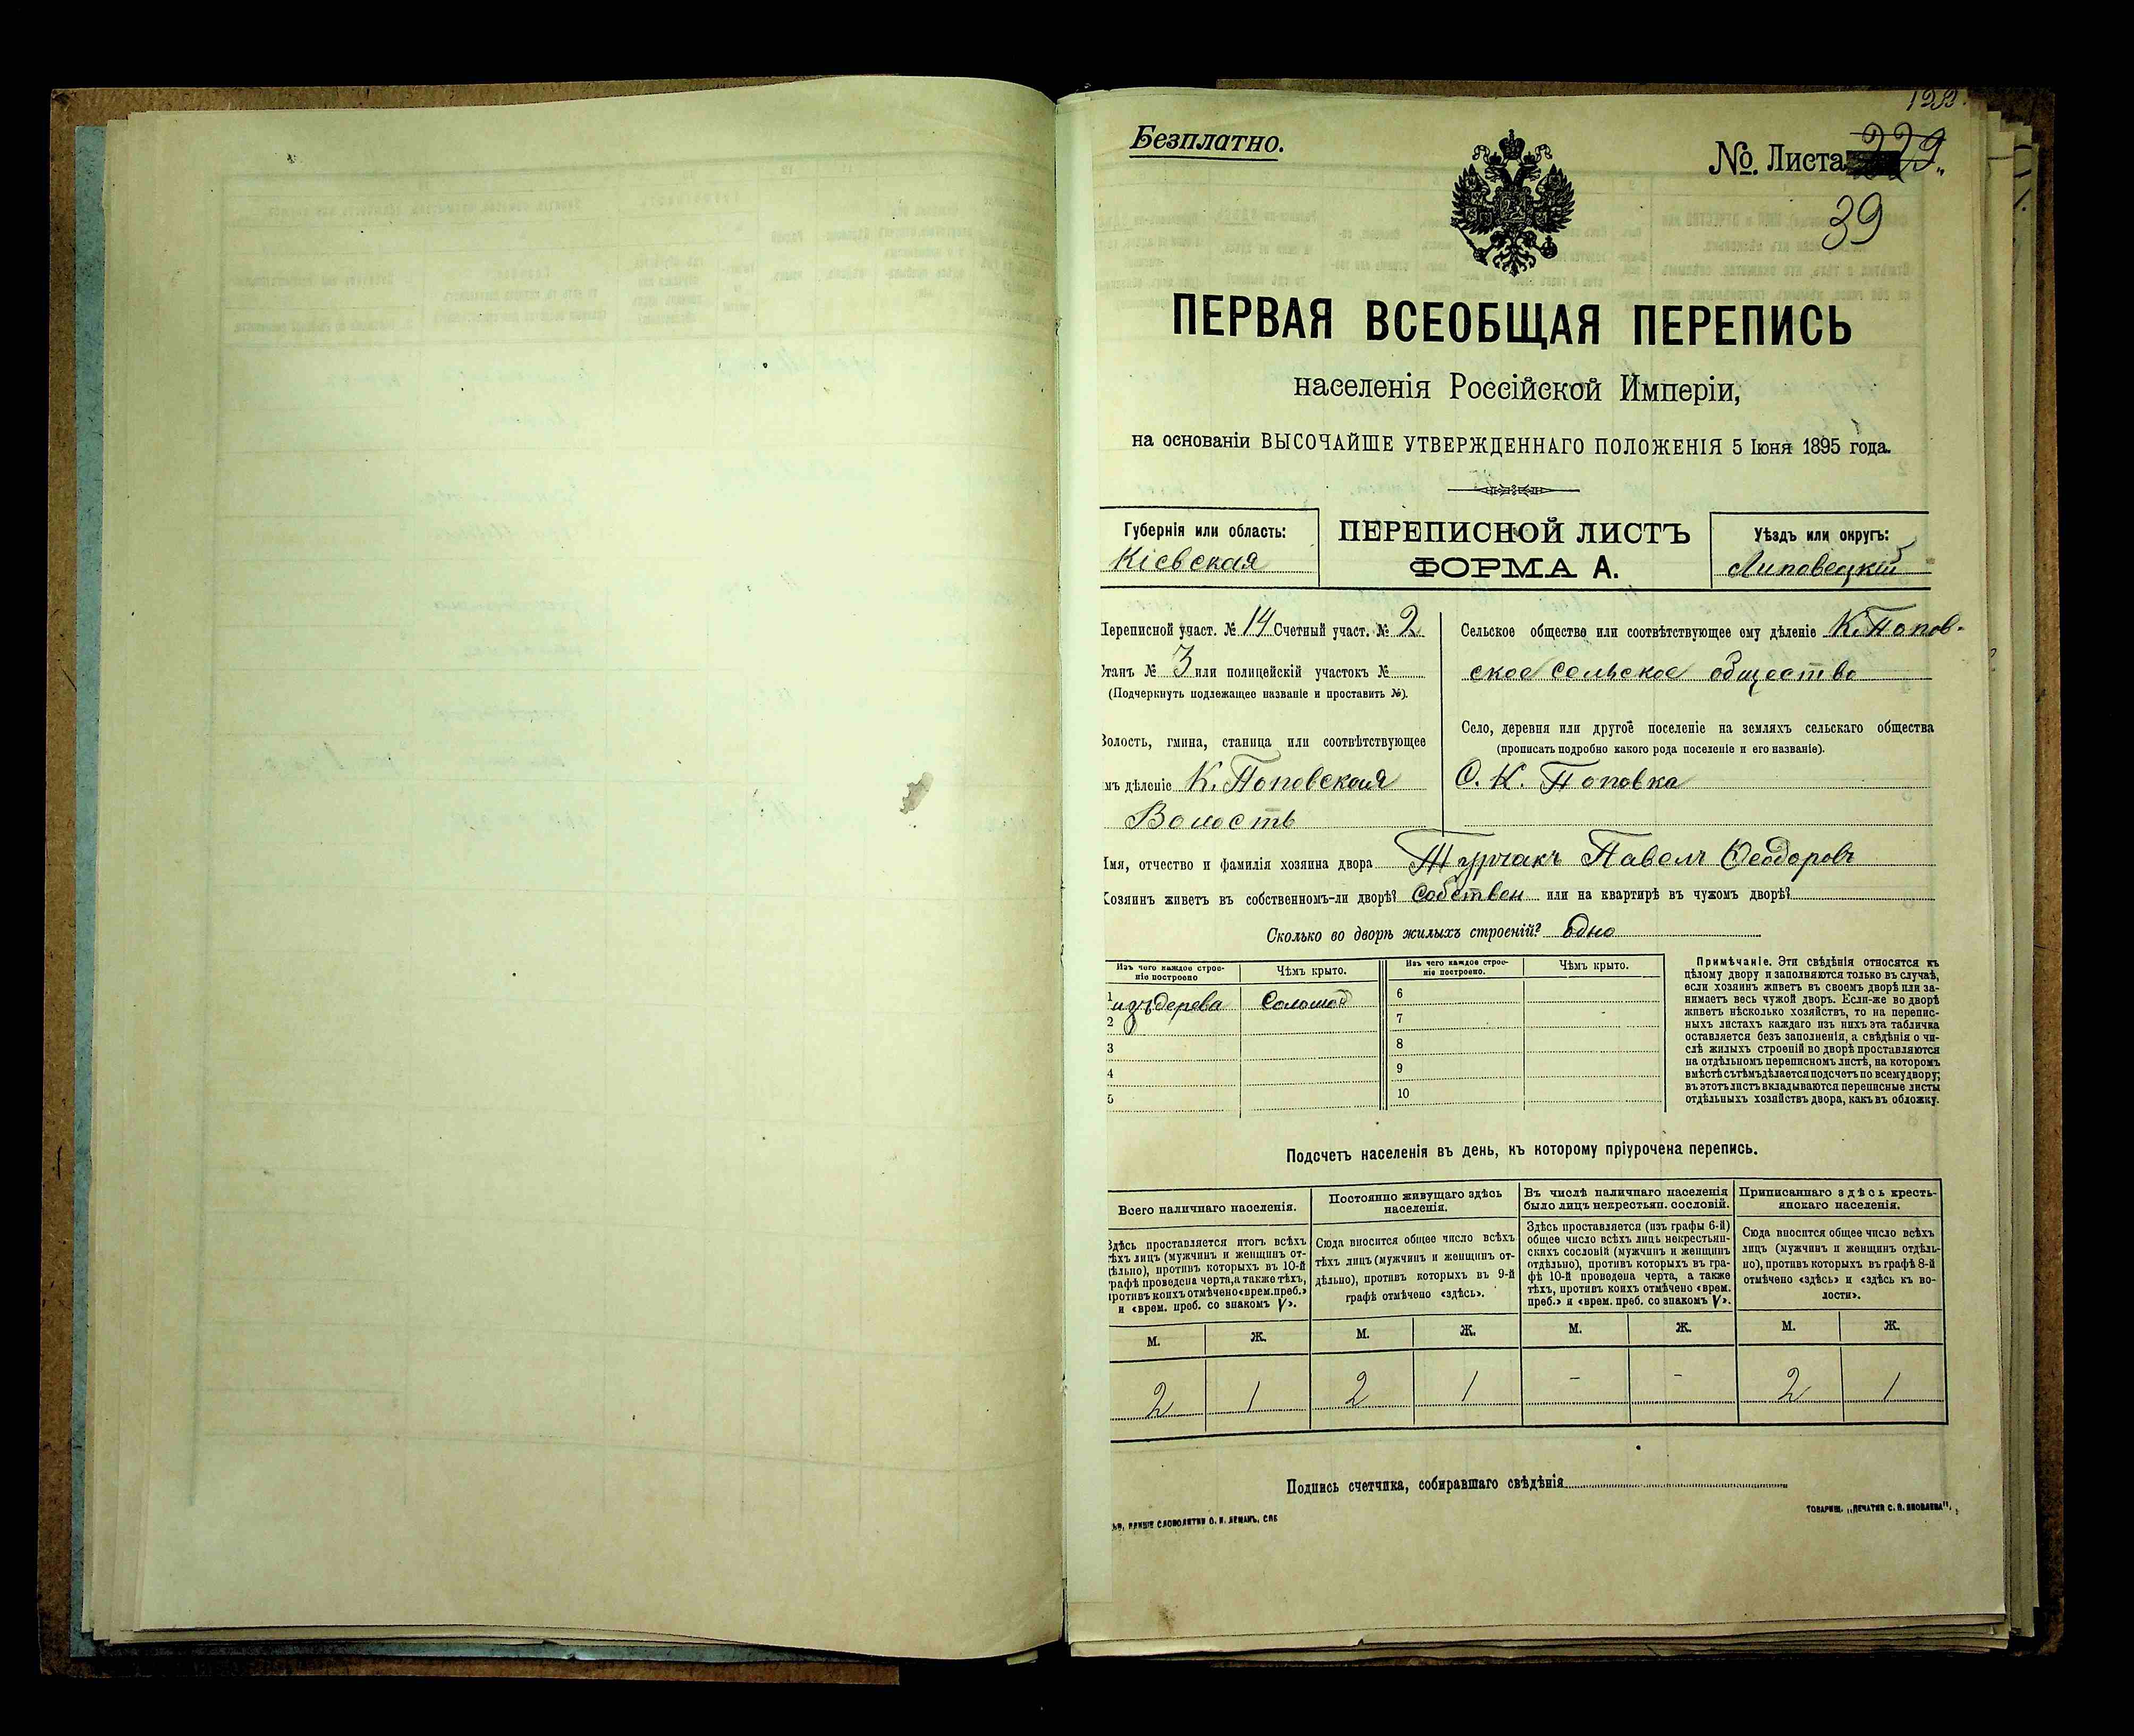 Безплатно.
№. Листа 229.
39
ПЕРВАЯ ВСЕОБЩАЯ ПЕРЕПИСЬ
населенія Россійской Имперіи,
на основаніи ВЫСОЧАЙШЕ УТВЕРЖДЕННАГО ПОЛОЖЕНІЯ 5 Іюня 1895 года.
Губернія или область:
Кіевская
ПЕРЕПИСНОЙ ЛИСТЪ
ФОРМА А.
Уѣздъ или округъ:
Липовецкій
Переписной участ. № 14 Счетный участ. № 2
Станъ № 3 или полицейскій участокъ №
(Подчеркнуть подлежащее названіе и проставить №).
Волость, гмина, станица или соотвѣтствующее
имъ дѣленіе К. Поповская
Волость
Сельское общество или соотвѣтствующее ему дѣленіе К. Попов-
ское сельское общество
Село, деревня или другое поселеніе на земляхъ сельскаго общества
(прописать подробно какого рода поселеніе и его названіе).
С. К. Поповка
Имя, отчество и фамилія хозяина двора Турчакъ Павелъ Феодоровъ
Хозяинъ живетъ въ собственномъ-ли дворѣ? собствен или на квартирѣ въ чужомъ дворѣ?
Сколько во дворѣ жилыхъ строеній? одно
Изъ чего каждое строе-
ніе построено
Чѣмъ крыто.
Изъ чего каждое строе-
ніе построено.
Чѣмъ крыто.
1 изъ дерева Соломой
2
3
4
5
6
7
8
9
10
Примѣчаніе. Эти свѣдѣнія относятся къ
цѣлому двору и заполняются только въ случаѣ,
если хозяинъ живетъ въ своемъ дворѣ или за-
нимаетъ весь чужой дворъ. Если-же во дворѣ
живетъ нѣсколько хозяйствъ, то на перепис-
ныхъ листахъ каждаго изъ нихъ эта табличка
оставляется безъ заполненія, а свѣдѣнія о чи-
слѣ жилыхъ строеній во дворѣ проставляются
на отдѣльномъ переписномъ листѣ, на которомъ
вмѣстѣ съ тѣмъ дѣлается подсчетъ по всему двору;
въ этотъ листъ вкладываются переписные листы
отдѣльныхъ хозяйствъ двора, какъ въ обложку.
Подсчетъ населенія въ день, къ которому пріурочена перепись.
Всего наличнаго населенія.
Здѣсь проставляется итогъ всѣхъ
тѣхъ лицъ (мужчинъ и женщинъ от-
дѣльно), противъ которыхъ въ 10-й
графѣ проведена черта, а также тѣхъ,
противъ коихъ отмѣчено «врем. преб.»
и «врем. преб. со знакомъ V».
Постоянно живущаго здѣсь
населенія.
Сюда вносится общее число всѣхъ
тѣхъ лицъ (мужчинъ и женщинъ от-
дѣльно), противъ которыхъ въ 9-й
графѣ отмѣчено «здѣсь».
Въ числѣ наличнаго населенія
было лицъ некрестьян. сословій.
Здѣсь проставляется (изъ графы 6-й)
общее число всѣхъ лицъ некрестьян-
скихъ сословій (мужчинъ и женщинъ
отдѣльно), противъ которыхъ въ гра-
фѣ 10-й проведена черта, а также
тѣхъ, противъ коихъ отмѣчено «врем.
преб.» и «врем. преб. со знакомъ V».
Приписаннаго здѣсь кресть-
янскаго населенія.
Сюда вносится общее число всѣхъ
лицъ (мужчинъ и женщинъ отдѣль-
но), противъ которыхъ въ графѣ 8-й
отмѣчено «здѣсь» и «здѣсь къ во-
лости».
М. Ж. М. Ж. М. Ж. М. Ж.
2 1 2 1 - - 2 1
Подпись счетчика, собиравшаго свѣдѣнія
СЛОВОЛИТНИ О. И. ЛЕМАНЪ, СПБ
ТОВАРИЩ. „ПЕЧАТНЯ С. П. ЯКОВЛЕВА“.